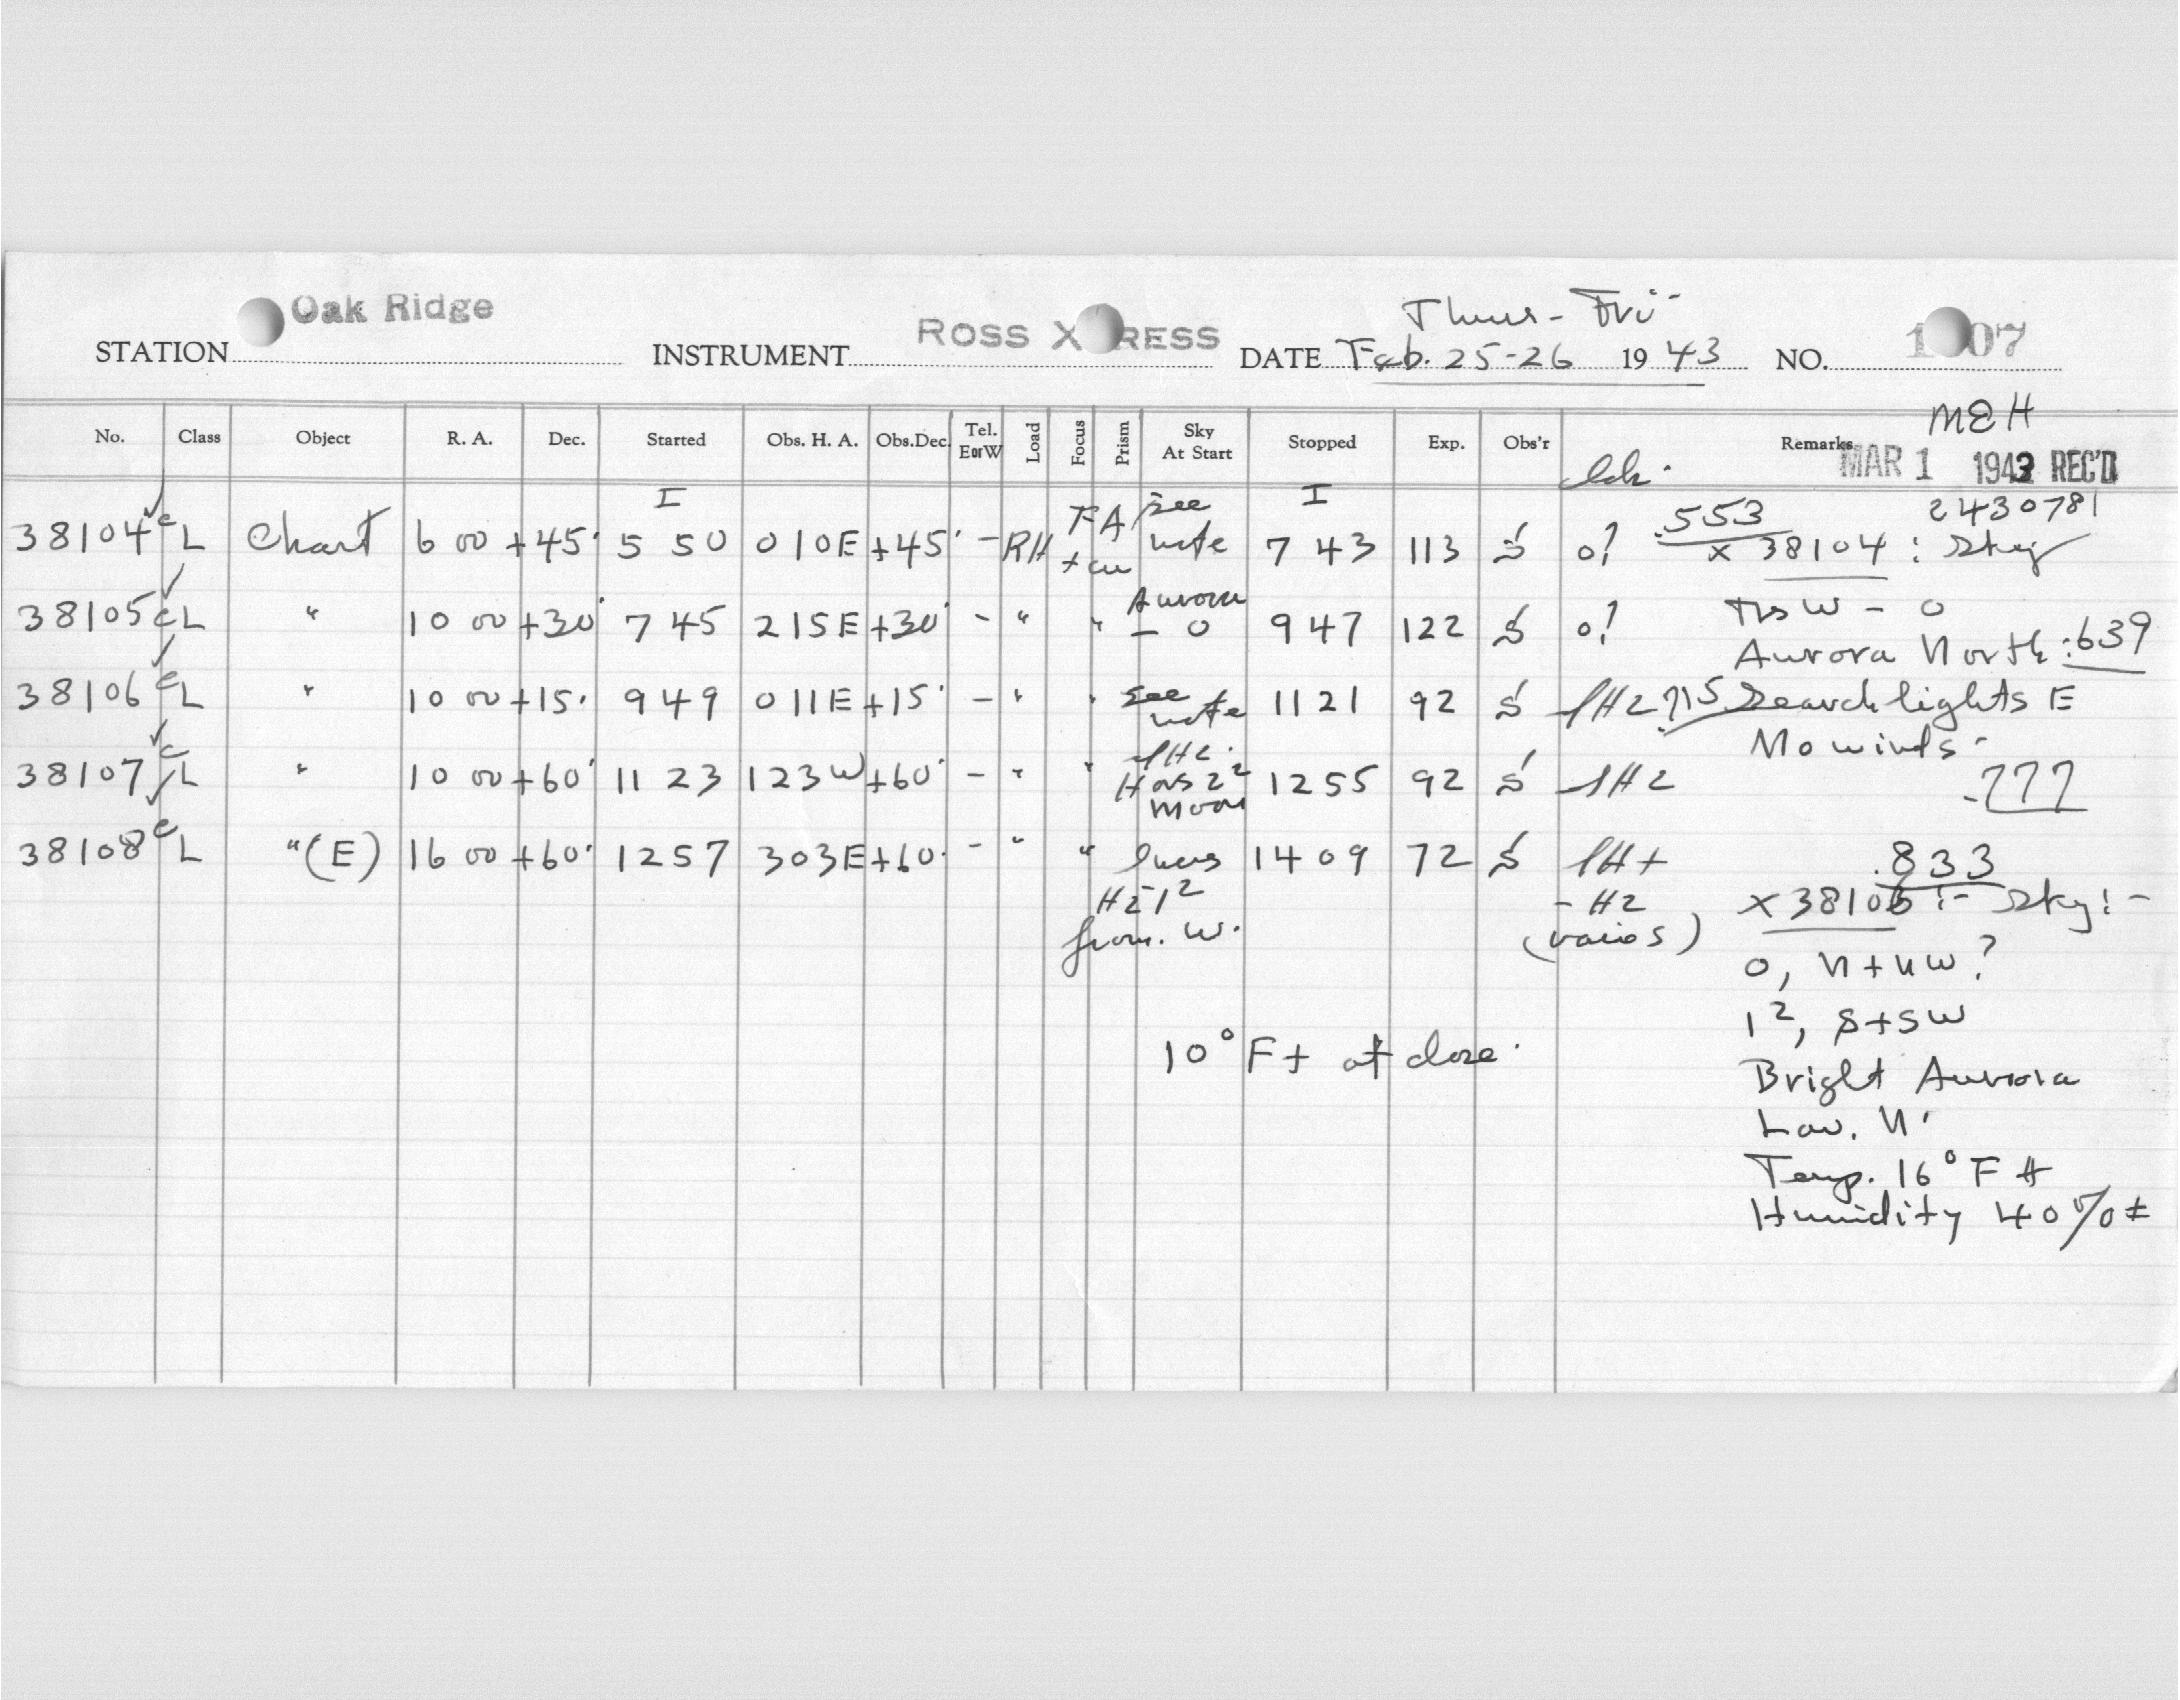 Oak Ridge
STATION
INSTRUMENT ROSS X RESS
Thurs - Fri -
DATE Feb. 25-26 1943
NO. 1 07
MEH
No. Class Object R. A. Dec. Started Obs. H. A. Obs.Dec. Tel. E or W Load Focus Prism Sky At Start Stopped Exp. Obs'r Remarks
MAR 1 1943 REC'D
I I
38104 c L Chart 6 00 +45 5 50 0 10E +45 - RH FA see note 7 43 113 S 0? .553 2430781
x 38104 : Sky
38105 c L " 10 00 +30 7 45 2 15E +30 - " " Aurora - 0 9 47 122 S 0? - 0
Aurora North : 639
38106 c L " 10 00 +15 9 49 0 11E +15 - " " see note 11 21 92 S H2 .715 Searchlights E
No winds -
38107 c L " 10 00 +60 11 23 1 23W +60 - " " H2 Moon 12 55 92 S H2 .777
38108 c L " (E) 16 00 +60 12 57 3 03E +60 - " " H2 1² from. W. 14 09 72 S H+ - H2 .833
x 38106 :- Sky! -
0, N + NW?
1², S + SW
10° F ± at close.
Bright Aurora
Low. N.
Temp. 16° F ±
Humidity 40% ±